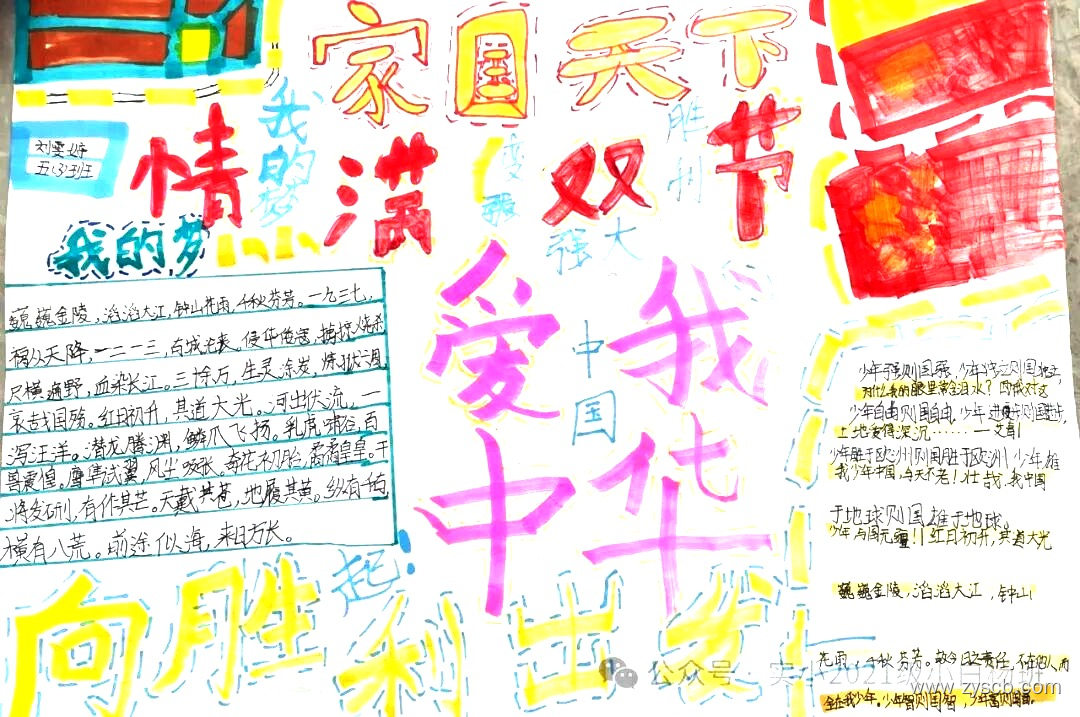 家国天下
情满双节
刘雯婷
五(3)班
我的梦
我的梦
强大
爱我
中华
中国
巍巍金陵，滔滔大江，钟山花雨，千秋芬芳。一九三七，
祸从天降，一二一三，古城沦丧。侵华倭寇，掳掠烧杀
尸横遍野，血染长江。三十余万，生灵涂炭，炼狱六周，
哀哉国殇。红日初升，其道大光。河出伏流，一
泻汪洋。潜龙腾渊，鳞爪飞扬。乳虎啸谷，百
兽震惶。鹰隼试翼，风尘吸张。奇花初胎，矞矞皇皇。干
将发硎，有作其芒。天戴其苍，地履其黄。纵有千古，
横有八荒。前途似海，来日方长。
少年强则国强，少年独立则国独立，
为什么我的眼里常含泪水？因为我对这
少年自由则国自由，少年进步则国进步，
土地爱得深沉……——艾青
少年胜于欧洲则国胜于欧洲，少年雄
我少年中国，与天不老！壮哉，我中国
于地球则国雄于地球。
少年与国无疆！红日初升，其道大光
巍巍金陵，滔滔大江，钟山
千秋芬芳。故今日之责任，不在他人，而
全在我少年。少年智则国智，少年富则国富。
向胜利出发
起！
公众号·实小2021级小白杨班
www.zyscb.com